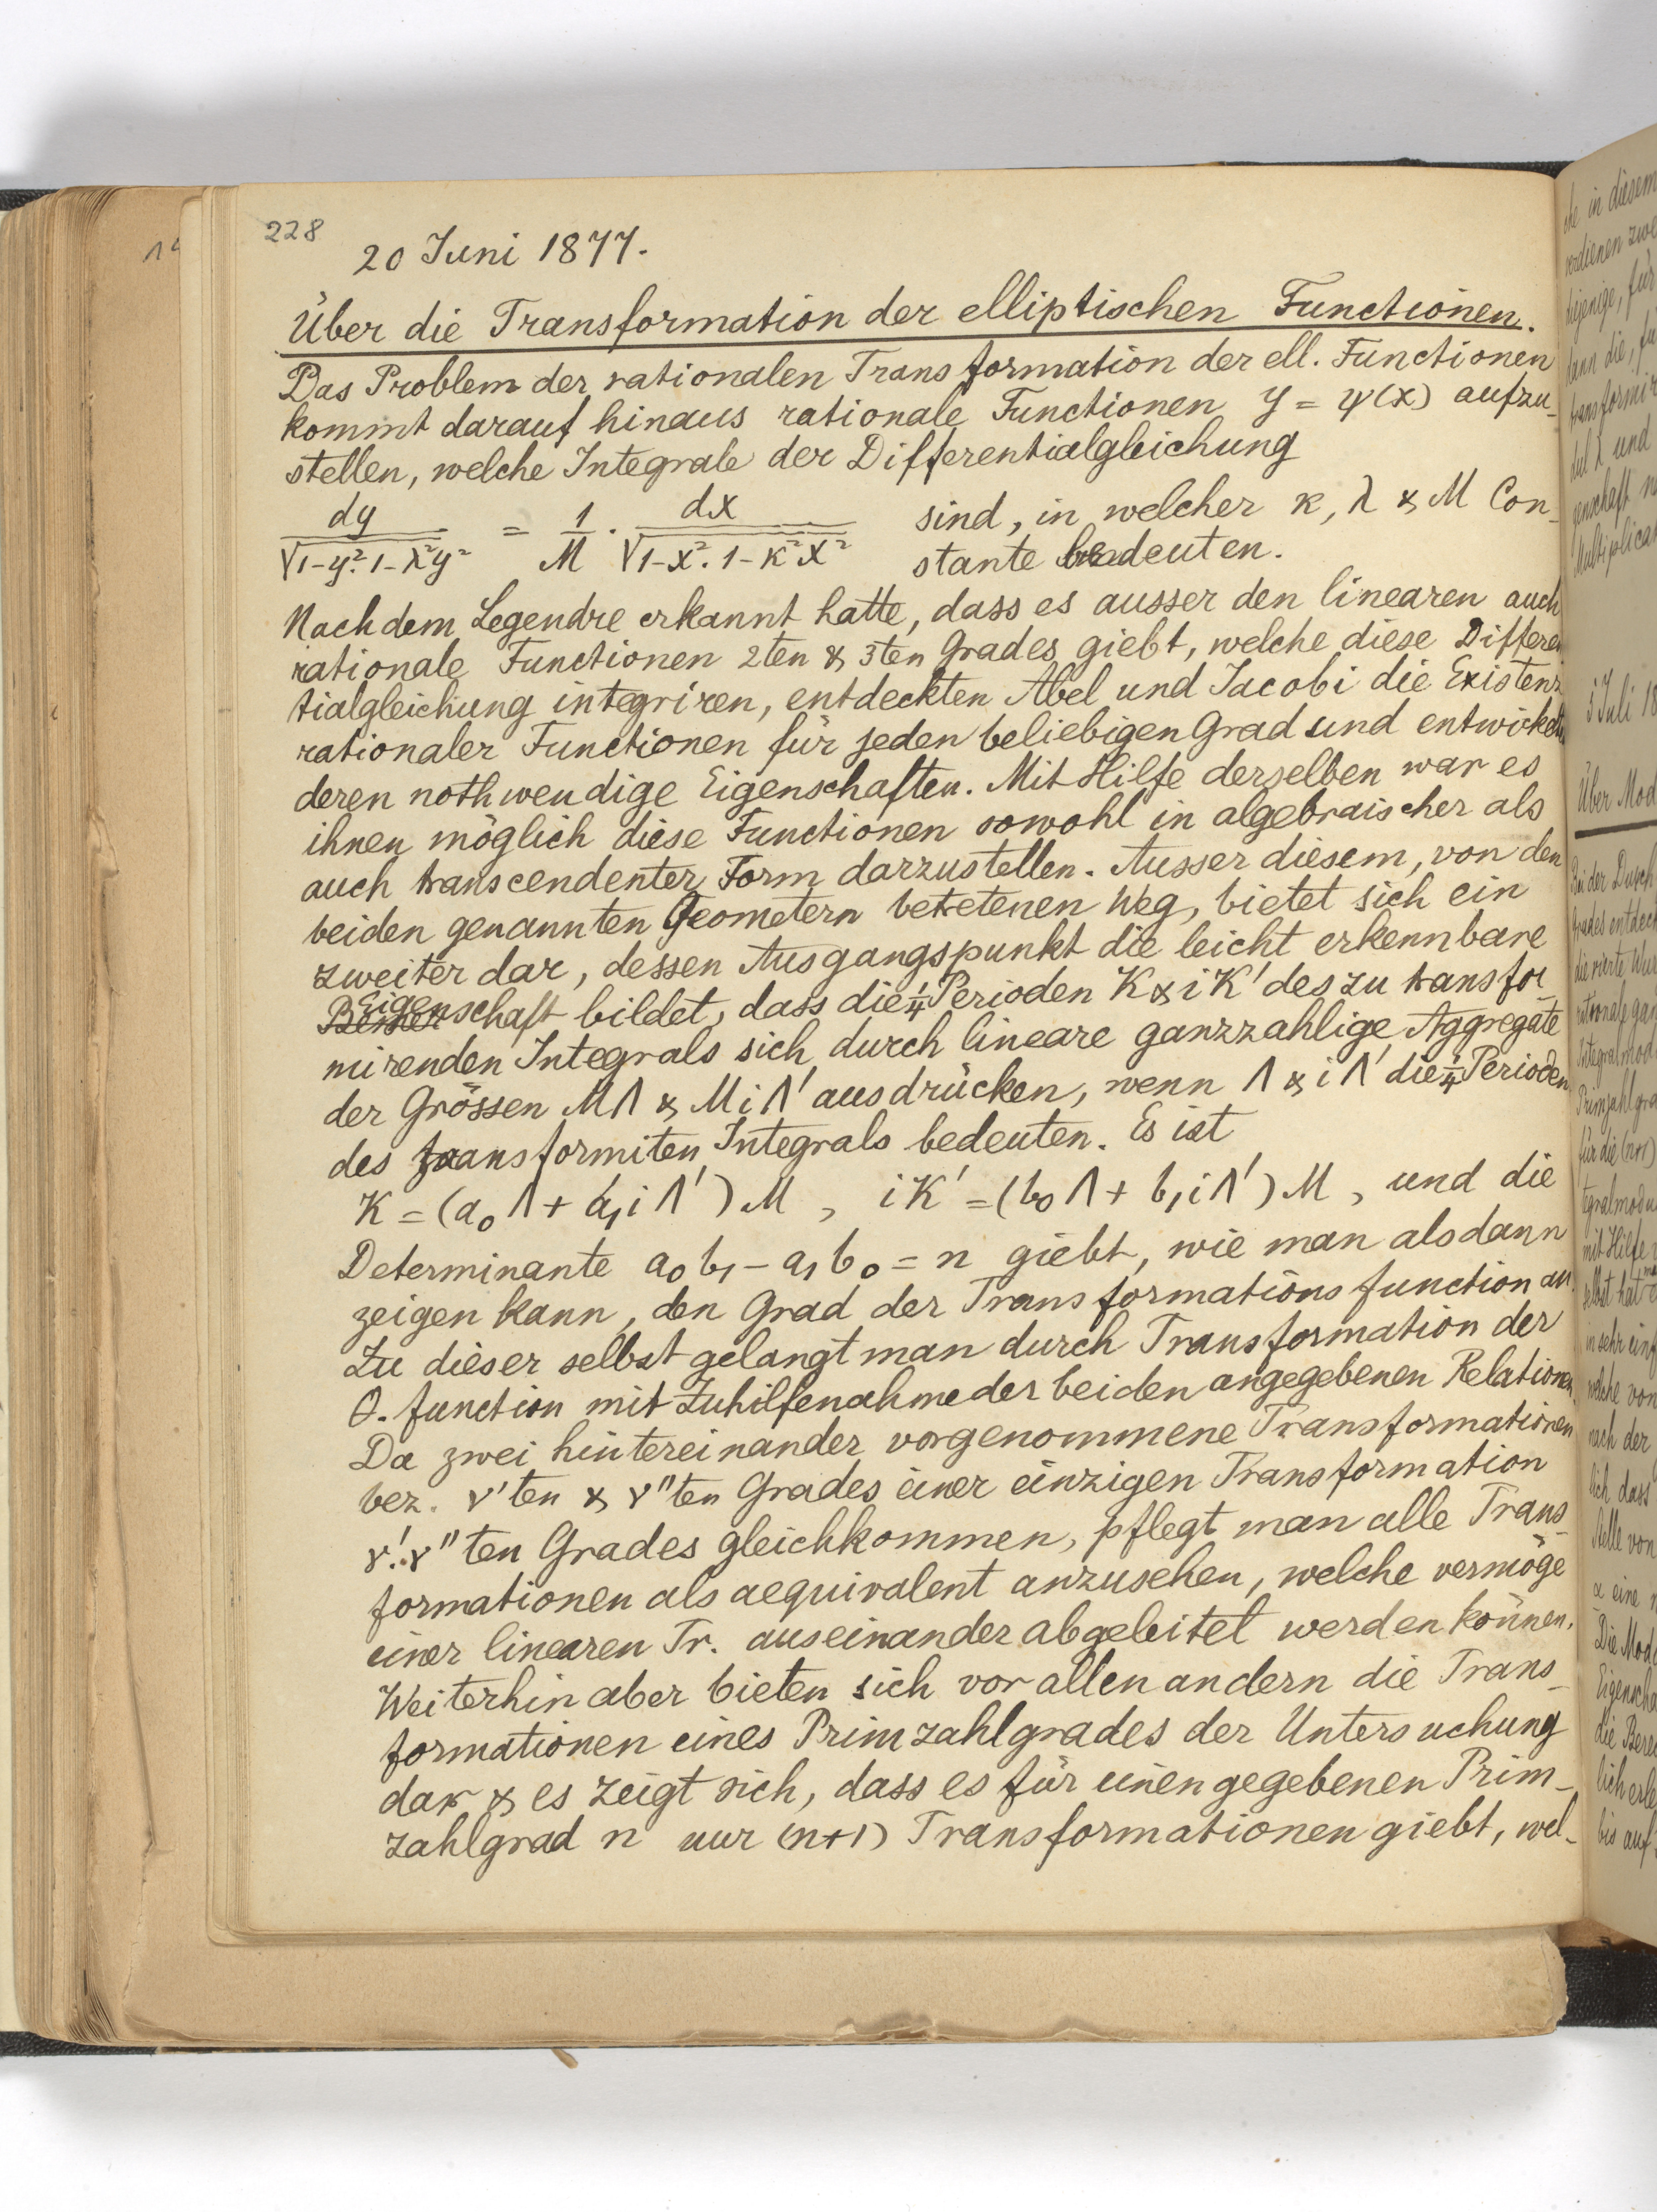 228
20 Juni 1877.
Über die Transformation der elliptischen Functionen.
Das Problem der rationalen Transformation der ell. Functionen
kommt darauf hinaus rationale Functionen y = ψ(x) aufzu-
stellen, welche Integrale der Differentialgleichung
dy / √1-y². 1-λ²y² = 1/M · dx / √1-x². 1-κ²x² sind, in welcher κ, λ & M Con-
stante bedeuten.
Nachdem Legendre erkannt hatte, dass es ausser den linearen auch
rationale Functionen 2ten & 3ten Grades giebt, welche diese Differen
tialgleichung integriren, entdeckten Abel und Jacobi die Existenz
rationaler Functionen für jeden beliebigen Grad und entwickelten
deren nothwendige Eigenschaften. Mit Hilfe derselben war es
ihnen möglich diese Functionen sowohl in algebraischer als
auch transcendenter Form darzustellen. Ausser diesem, von den
beiden genannten Geometern betretenen Weg, bietet sich ein
zweiter dar, dessen Ausgangspunkt die leicht erkennbare
Eigenschaft bildet, dass die ¼ Perioden K & iK' des zu transfor
mirenden Integrals sich durch lineare ganzzahlige Aggregate
der Grössen MΛ & MiΛ' ausdrücken, wenn Λ & iΛ' die ¼ Perioden
des transformiten Integrals bedeuten. Es ist
K = (a₀Λ + a₁iΛ')M , iK' = (b₀Λ + b₁iΛ')M , und die
Determinante a₀b₁ - a₁b₀ = n giebt, wie man alsdann
zeigen kann, den Grad der Transformationsfunction an.
Zu dieser selbst gelangt man durch Transformation der
Θ. function mit Zuhilfenahme der beiden angegebenen Relationen.
Da zwei hintereinander vorgenommene Transformationen
bez. ν'ten & ν"ten Grades einer einzigen Transformation
ν'.ν"ten Grades gleichkommen, pflegt man alle Trans-
formationen als aequivalent anzusehen, welche vermöge
einer linearen Tr. auseinander abgeleitet werden können.
Weiterhin aber bieten sich vor allen andern die Trans-
formationen eines Primzahlgrades der Untersuchung
dar & es zeigt sich, dass es für einen gegebenen Prim-
zahlgrad n nur (n+1) Transformationen giebt, wel-
in diesem
verdienen zwe
diejenige, für
dann die, fü
transformir
dul λ und
genschaft n
Multiplicat
5 Juli 18
Über Mod
Bei der Durch
Grades entdeck
die vierte Wur
rationale gan
Integralmod
Primzahlgra
für die (n+1)
tegralmodu
mit Hilfe
selbst hat
in sehr einf
welche von
nach der
lich dass
Stelle von
α eine
Die Mod
Eigenscha
die Bere
lich erle
bis auf